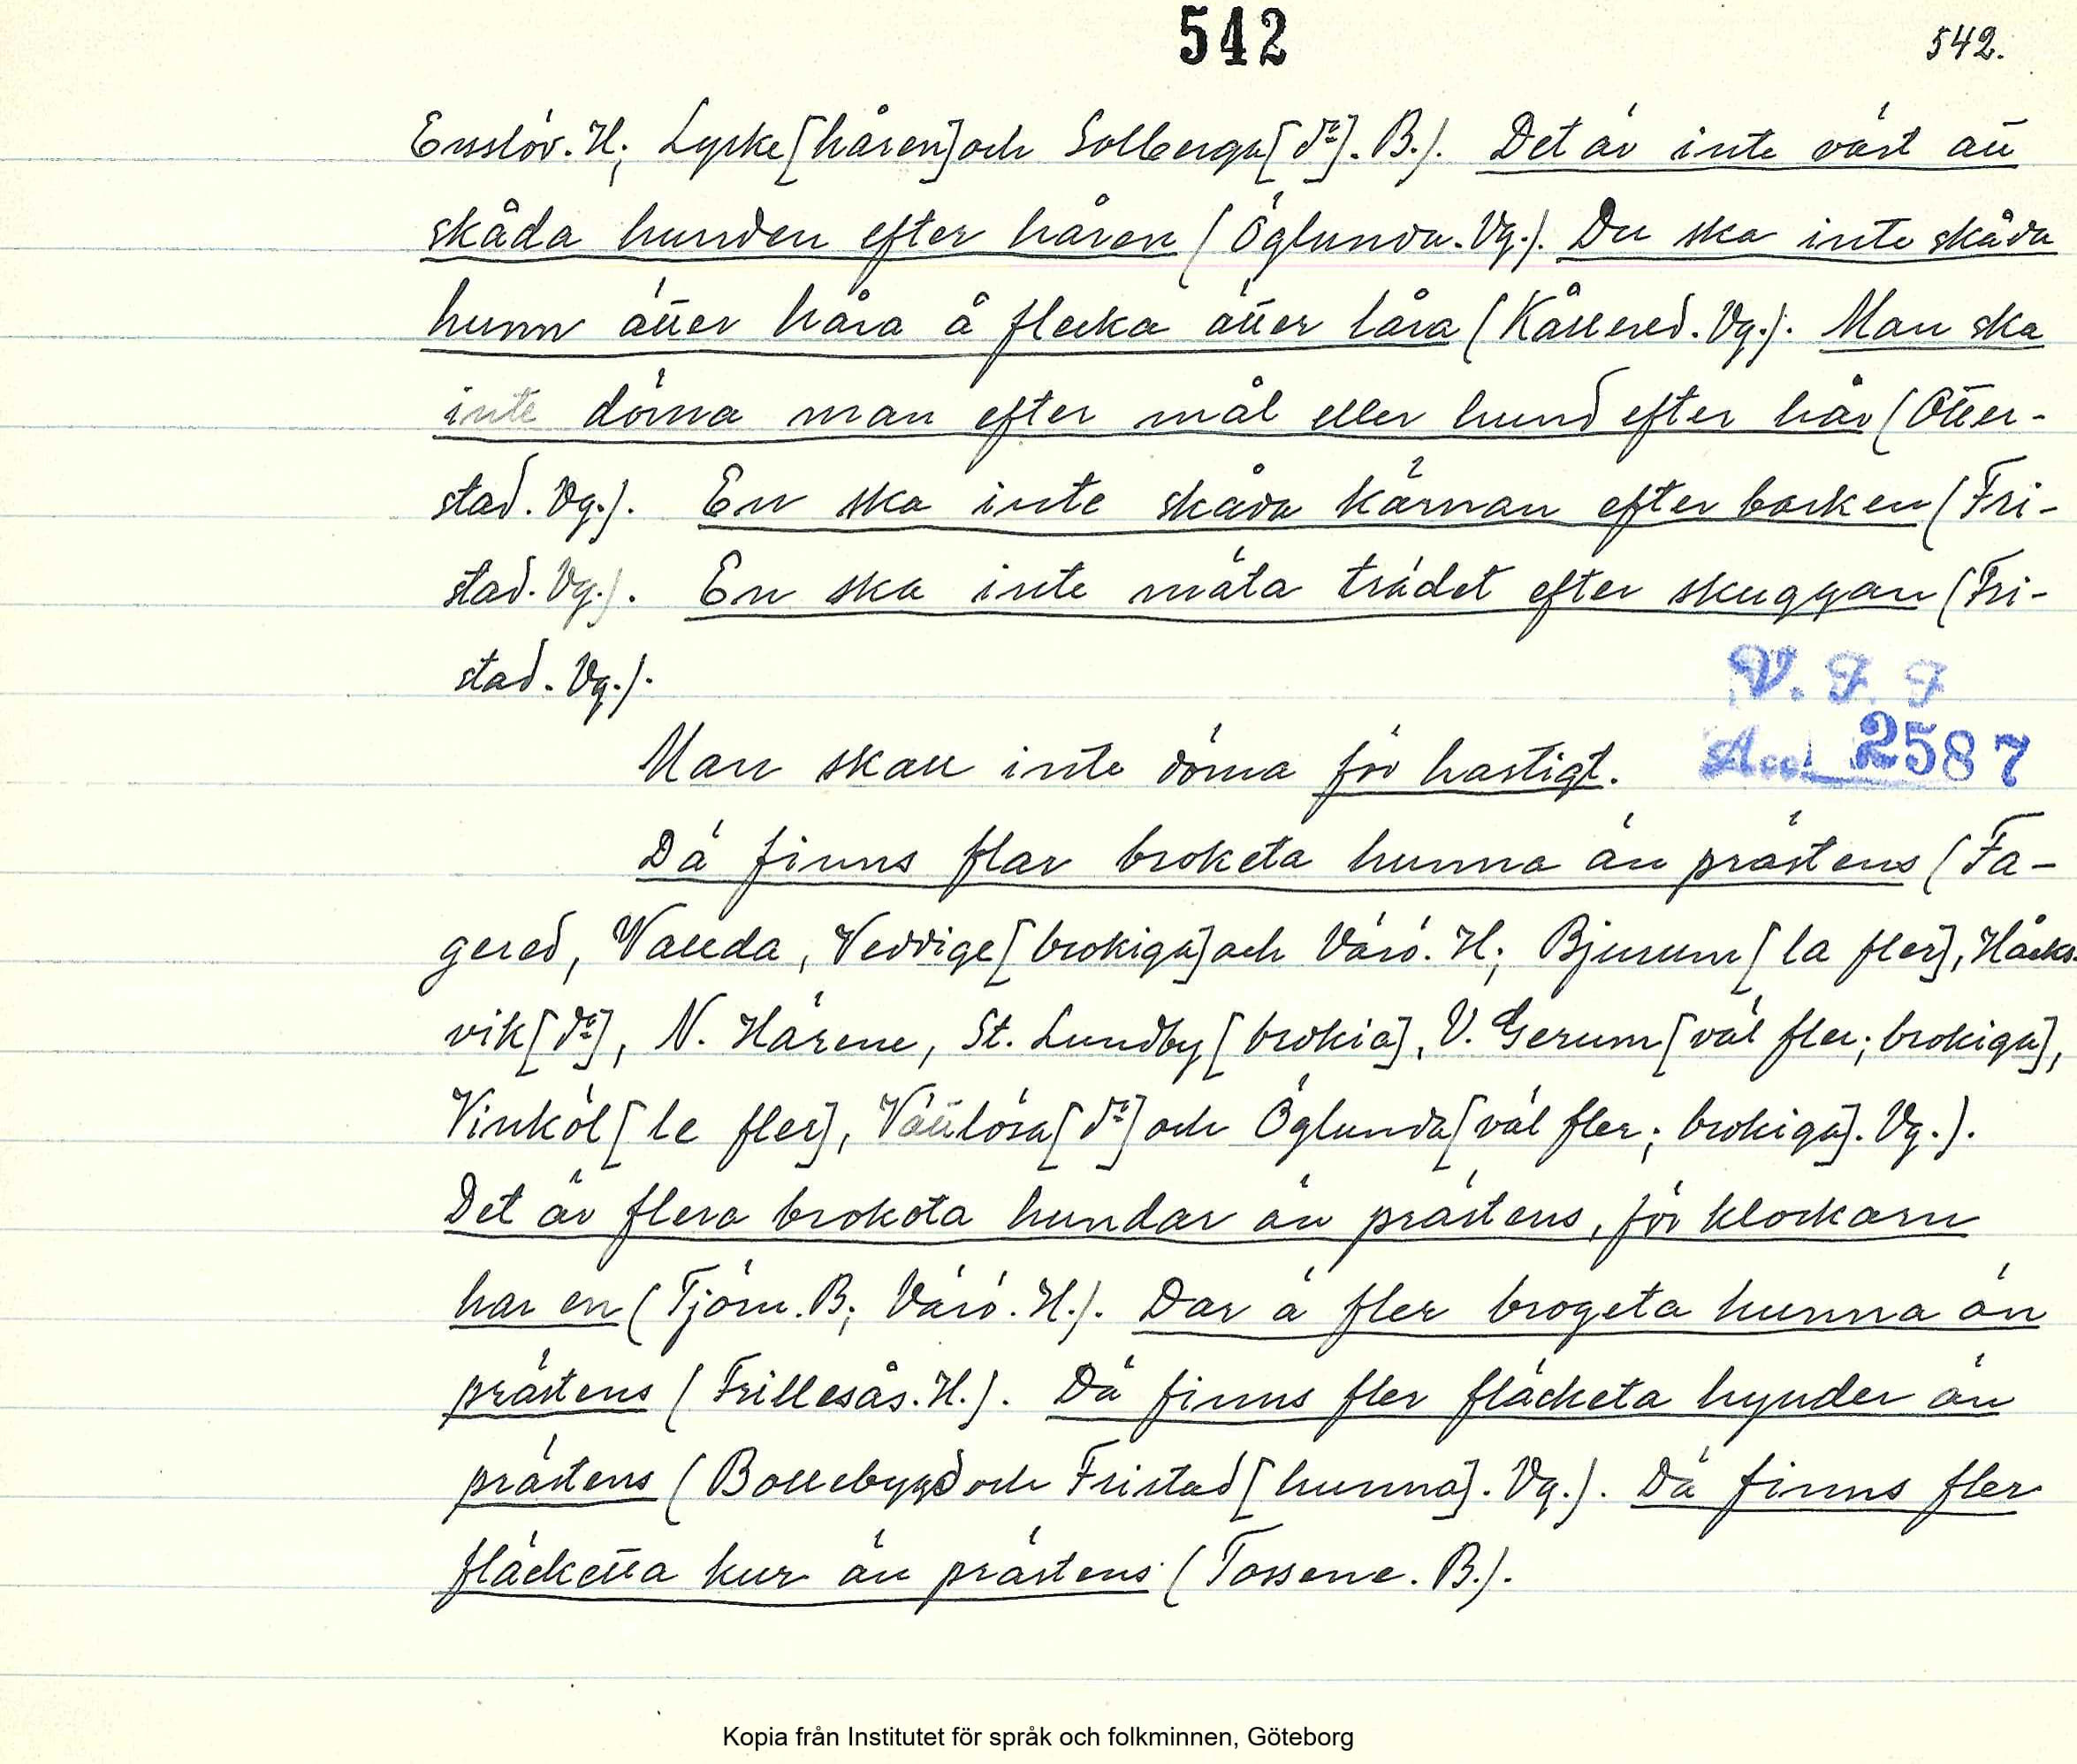 542
542.
Enslöv. H; Lycke [håren] och Solberga [do]. B.). Det är inte värt att
skåda hunden efter håren (Öglunda. Vg.). Du ska inte skåda
hunn ätter håra å flecka ätter låra (Kållered. Vg.). Man ska
inte döma man efter mål eller hund efter hår (Otter-
stad. Vg.). En ska inte skåda kärnan efter barken (Fri-
stad. Vg.). En ska inte mäta trädet efter skuggan (Fri-
stad. Vg.).
V. F. F
Man skall inte döma för hastigt.
Acc. 2587
Dä finns flar broketa hunna än prästens (Fa-
gered, Valda, Veddige [brokiga] och Värö. H; Bjurum [la fler], Håcks-
vik [do], N. Härene, St. Lundby [brokia], V. Gerum [väl fler; brokiga],
Vinköl [le fler], Vättlösa [do] och Öglunda [väl fler; brokiga]. Vg.).
Det är flera brokota hundar än prästens, för klockarn
har en (Tjörn. B; Värö. H.). Dar ä fler brogeta hunna än
prästens (Frillesås. H.). Dä finns fler fläcketa hynder än
prästens (Bollebygd och Fristad [hunna]. Vg.). Dä finns fler
fläcketta kur än prästens (Tossene. B.).
Kopia från Institutet för språk och folkminnen, Göteborg